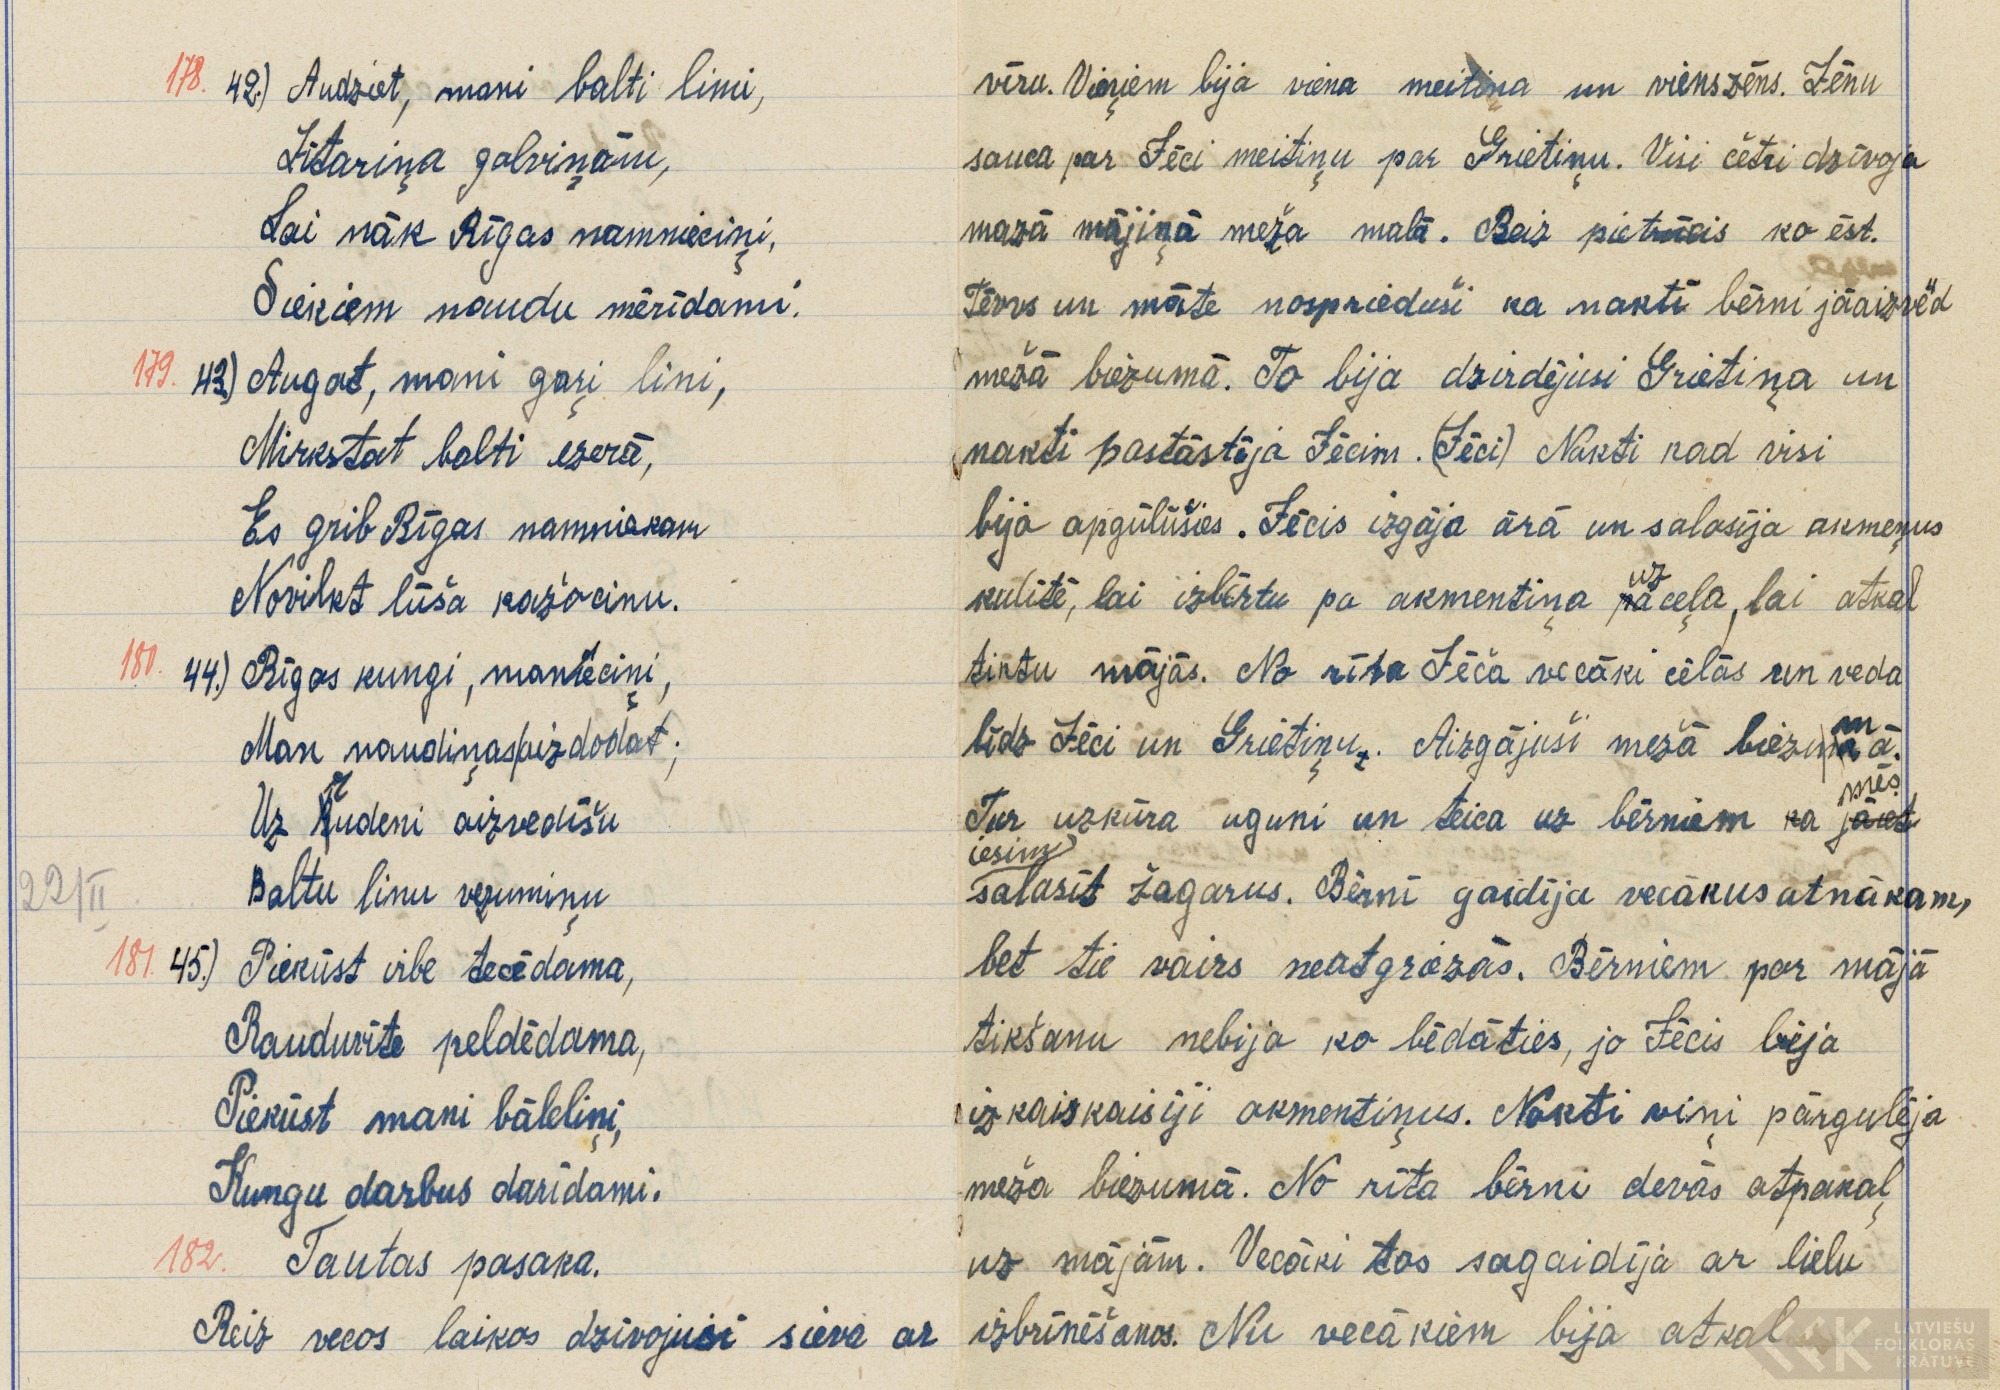 178. 42.) Audziet, mani balti lini,
Zītariņa galviņām,
Lai nāk Rīgas namnieciņi,
Siekiem naudu mērīdami.
179. 43.) Augat, mani gaŗi lini,
Mirkstat balti ezerā,
Es grib Rīgas namniekam
Novilkt lūša kažocinu.
180. 44.) Rīgas kungi, mantieciņi,
Man naudiņas aizdodat;
Uz rudeni aizvedīšu
22/II Baltu linu vezumiņu
181. 45.) Piekūst irbe tecēdama,
Rauduvīte peldēdama,
Piekūst mani bāleliņi,
Kungu darbus darīdami.
182. Tautas pasaka.
Reiz vecos laikos dzīvojusi sieva ar
vīru. Viņiem bija viena meitiņa un viens zēns. Zēnu
sauca par Ješci meitiņu par Grietiņu. Visi četri dzīvoja
mazā mājiņā meža malā. Reiz pietrūcis ko ēst.
Tēvs un māte nosprieduši ka naktī bērni jāaizvēd
mežā biezumā. To bija dzirdējusi Grietiņa un
nakti pastāstīja Jēcim. (Jēci) Nakti kad visi
bija apgūlušies. Jēcis izgāja ārā un salasīja akmeņus
kulītē, lai izbērtu pa akmentiņa uz ceļa, lai atkal
tiktu mājās. No rīta Jēča vecāki cēlās un veda
līdz Jēci un Grietiņu. Aizgājuši mežā biezumā.
Tur uzkūra uguni un teica uz bērniem ka mēs
iesim
salasīt žagarus. Bērni gaidīja vecākus atnākam,
bet tie vairs neatgriezās. Bērniem par mājā
tikšanu nebija ko bēdāties, jo Jēcis bija
izkaiskaisīji akmentiņus. Nakti viņi pārgulēja
meža biezumā. No rīta bērni devās atpakaļ
uz mājām. Vecāki tos sagaidīja ar lielu
izbrīnēšanos. Nu vecākiem bija atkal
LATVIEŠU
FOLKLORAS
KRĀTUVE